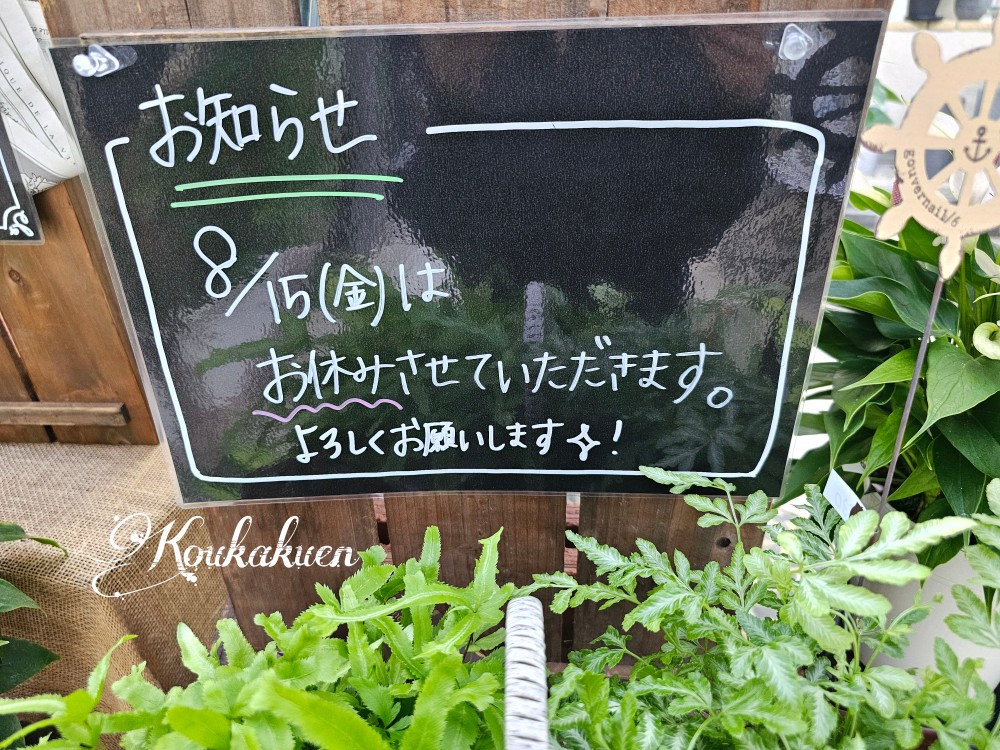 お知らせ
8/15(金)は
お休みさせていただきます。
よろしくお願いします✧!
Koukakuen
gouvernail/6